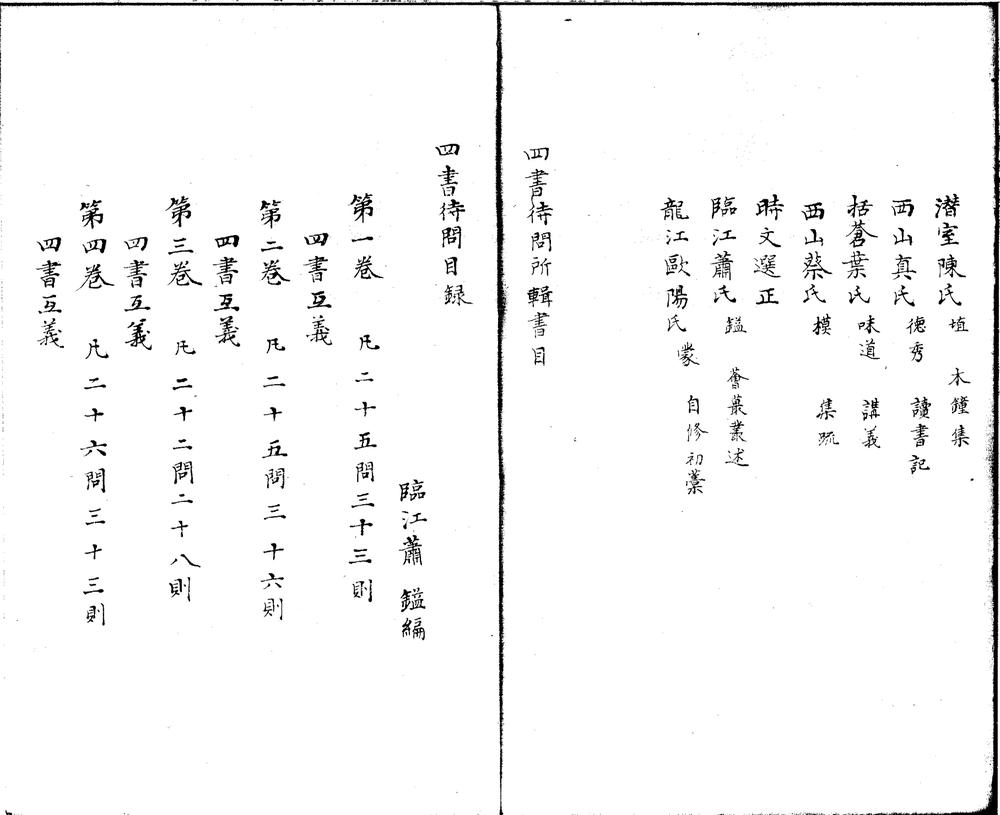 潛室陳氏 埴 木鐘集
西山真氏 德秀 讀書記
括蒼葉氏 味道 講義
西山蔡氏 模 集疏
時文選正
臨江蕭氏 鎰 薈蕞叢述
龍江歐陽氏 蒙 自修初藁
四書待問所輯書目
四書待問目録
臨江蕭 鎰編
第一卷 凡二十五問三十三則
四書互義
第二卷 凡二十五問三十六則
四書互義
第三卷 凡二十二問二十八則
四書互義
第四卷 凡二十六問三十三則
四書互義